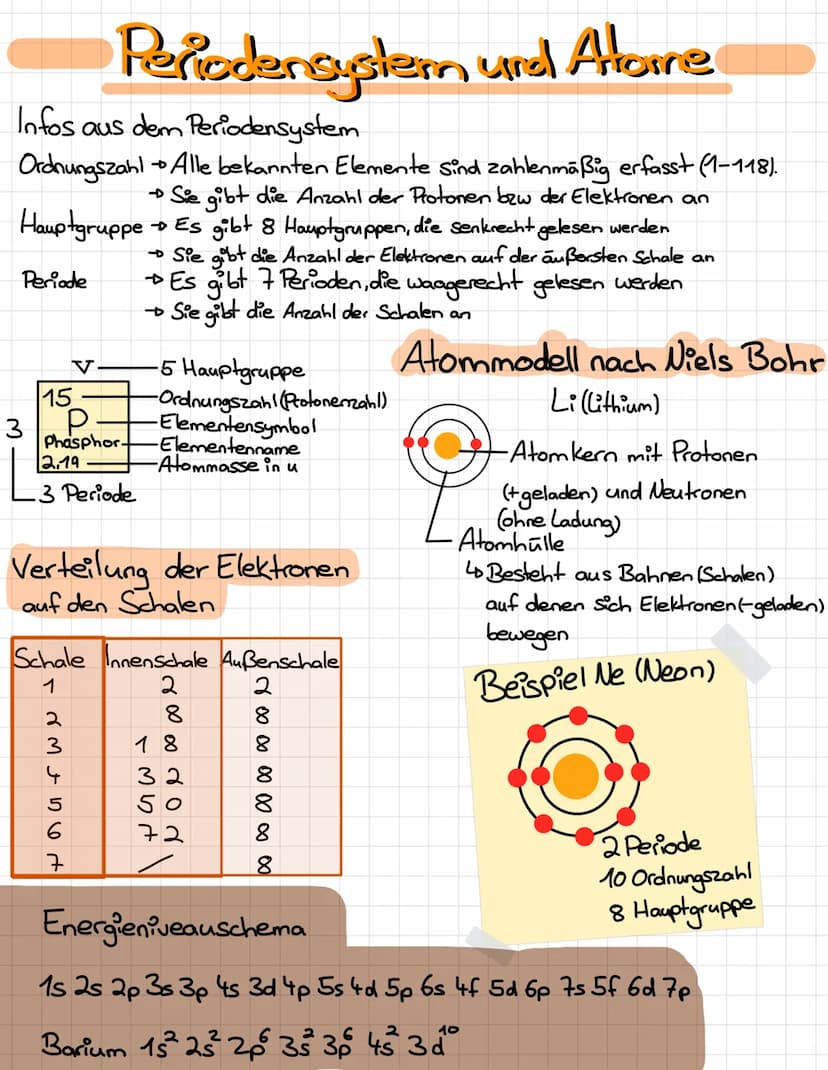 Periodensystem und Atome
Infos aus dem Periodensystem
Ordnungszahl → Alle bekannten Elemente sind zahlenmäßig erfasst (1-118).
→ Sie gibt die Anzahl der Protonen bzw der Elektronen an
Hauptgruppe → Es gibt 8 Hauptgruppen, die senkrecht gelesen werden
→ Sie gibt die Anzahl der Elektronen auf der äußersten Schale an
Periode → Es gibt 7 Perioden, die waagerecht gelesen werden
→ Sie gibt die Anzahl der Schalen an
V 5 Hauptgruppe
15 Ordnungszahl (Protonenzahl)
P Elementensymbol
3
Phosphor Elementenname
2,19 Atommasse in u
3 Periode
Atommodell nach Niels Bohr
Li (Lithium)
Atomkern mit Protonen
(+geladen) und Neutronen
(ohne Ladung)
Atomhülle
↳ Besteht aus Bahnen (Schalen)
auf denen sich Elektronen (-geladen)
bewegen
Verteilung der Elektronen
auf den Schalen
Schale Innenschale Außenschale
1 2 2
2 8 8
3 18 8
4 32 8
5 50 8
6 72 8
7 / 8
Beispiel Ne (Neon)
2 Periode
10 Ordnungszahl
8 Hauptgruppe
Energieniveauschema
1s 2s 2p 3s 3p 4s 3d 4p 5s 4d 5p 6s 4f 5d 6p 7s 5f 6d 7p
Barium 1s² 2s² 2p⁶ 3s² 3p⁶ 4s² 3d¹⁰